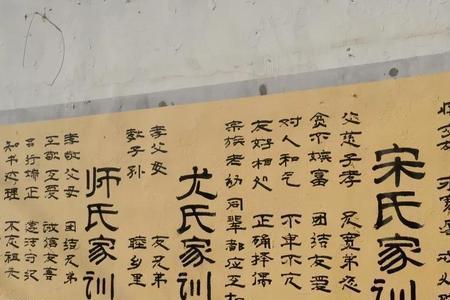 宋氏家训
父慈子孝 兄宽弟忍
贫不嫉富 团结友爱
对人和气 不卑不亢
友好相处 正确择偶
宗族老幼同辈都应互
尤氏家训
孝父母 友兄弟
教子孙 睦乡里
师氏家训
孝敬父母 团结兄弟
互敬互爱 诚信友善
言行端正 遵法守纪
知书达理 不忘祖先